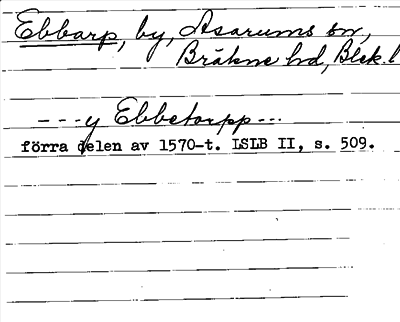 Ebbarp, by, Asarums sn,
Bräkne hd, Blek. l
---y Ebbetorpp---
förra delen av 1570-t. LSLB II, s. 509.